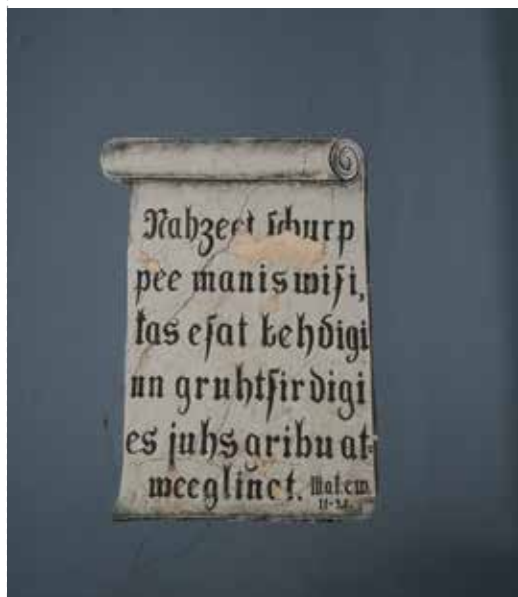 Nahzeet ſchurp
pee manis wiſi,
kas eſat behdigi
un gruhtſirdigi
es juhs gribu at=
weeglinat. Matew.
11-28.